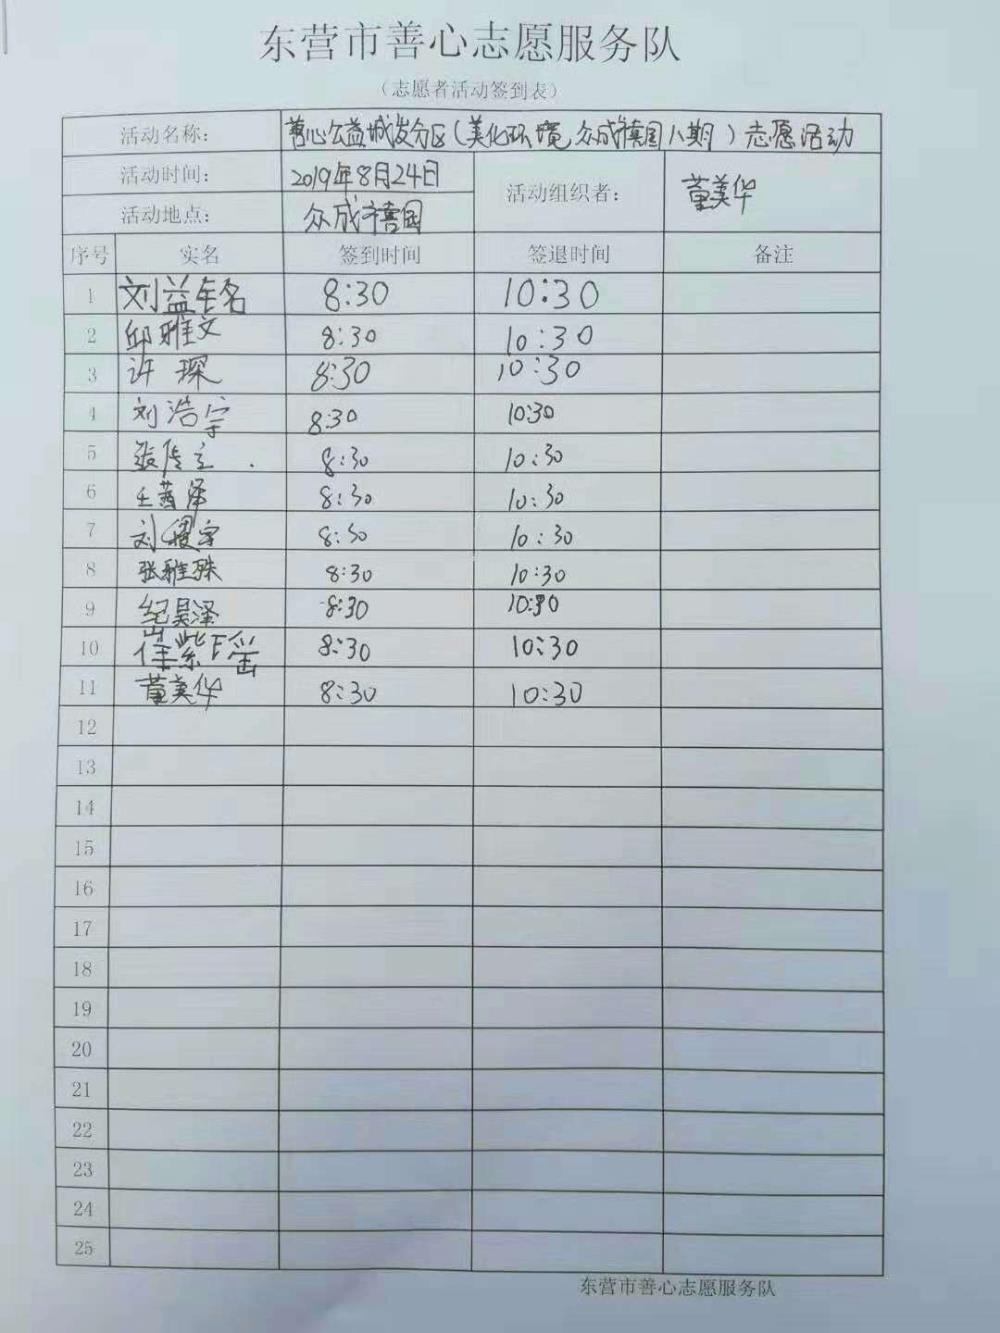 东营市善心志愿服务队
（志愿者活动签到表）
活动名称： 善心公益城发分区（美化环境，众成禧园八期）志愿活动
活动时间： 2019年8月24日 活动组织者： 董美华
活动地点： 众成禧园
序号 实名 签到时间 签退时间 备注
1 刘益铭 8:30 10:30
2 邱雅文 8:30 10:30
3 许琛 8:30 10:30
4 刘浩宇 8:30 10:30
5 8:30 10:30
6 王茜泽 8:30 10:30
7 8:30 10:30
8 张雅殊 8:30 10:30
9 纪昊泽 8:30 10:30
10 崔紫瑶 8:30 10:30
11 董美华 8:30 10:30
12
13
14
15
16
17
18
19
20
21
22
23
24
25
东营市善心志愿服务队